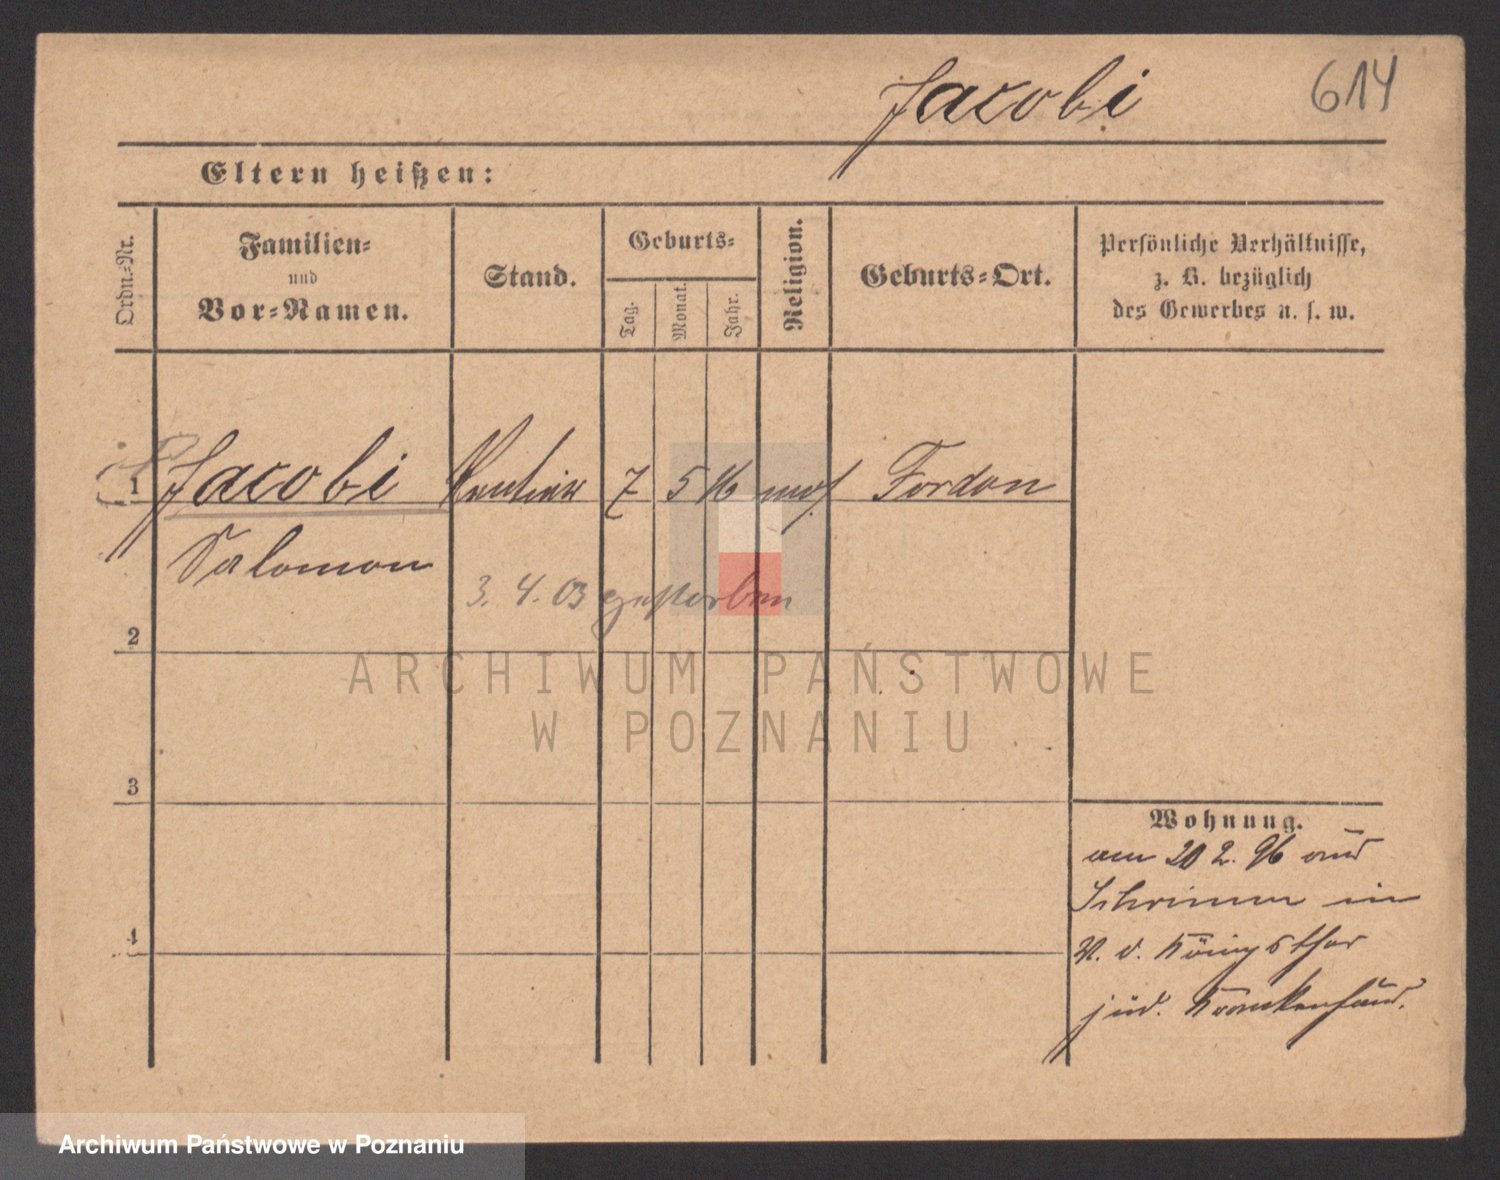 Jacobi
614
Eltern heißen:
Ordn.=Nr.
Familien=
und
Vor=Namen.
Stand.
Geburts=
Tag.
Monat.
Jahr.
Religion.
Geburts=Ort.
Persönliche Verhältnisse,
z. B. bezüglich
des Gewerbes u. s. w.
1 Jacobi Rentier 7 5 16 mos Fordon
Salomon
3. 4. 03 gestorben
2
ARCHIWUM PAŃSTWOWE
W POZNANIU
3
4
Wohnung.
am 20 2. 96 aus
Schrimm in
V. d. Königsthor
jüd. Krankenhaus.
Archiwum Państwowe w Poznaniu